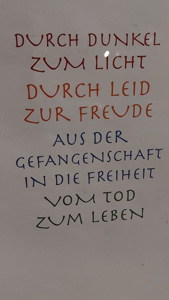 DURCH DUNKEL
ZUM LICHT
DURCH LEID
ZUR FREUDE
AUS DER
GEFANGENSCHAFT
IN DIE FREIHEIT
VOM TOD
ZUM LEBEN